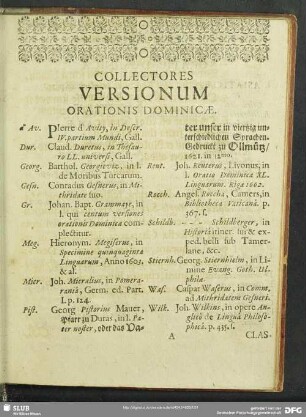 COLLECTORES
VERSIONUM
ORATIONIS DOMINICÆ.
Av. Pierre d'Avity, in Descr.
IV. partium Mundi, Gall.
Dur. Claud. Duretus, in Thesau-
ro LL. universi, Gall.
Georg. Barthol. Georgievic, in l.
de Moribus Turcarum.
Gesn. Conradus Gesnerus, in Mi-
thridate suo.
Gr. Johan. Bapt. Grammaye, in
l. qui centum versiones
orationis Dominicæ com-
plectitur.
Meg. Hieronym. Megiserus, in
Specimine quinquaginta
Linguarum, Anno 1603.
& al.
Micr. Joh. Micralius, in Pomera-
ranià, Germ. ed. Part.
I. p. 124.
Pist. Georg Pistorius Mauer,
Pfarr zu Duras, in l. Pa-
ter noster, oder das Va-
ter unser in viertzig un-
terschiedlichen Sprachen.
Gedruckt zu Ollmütz/
1621. in 12mo.
Reut. Joh. Reuterus, Livonus, in
l. Oratio Dominica XL.
Linguarum. Riga 1662.
Rocch. Angel. Roccha, Camers, in
Bibliotheca Vaticanâ. p.
367. s.
Schildb. - - Schildberger, in
Historiâ itiner. sui & ex-
ped. belli sub Tamer-
lane, &c.
Stiernh. Georg. Stiernhielm, in Li-
mine Evang. Goth. Ul-
philæ.
Was. Caspar Waserus, in Comm.
ad Mithridatem Gesneri.
Wilk. Joh. Wilkins, in opere An-
glico de Linguâ Philoso-
phicâ. p. 435. s.
A CLAS-
SLUB
DFG